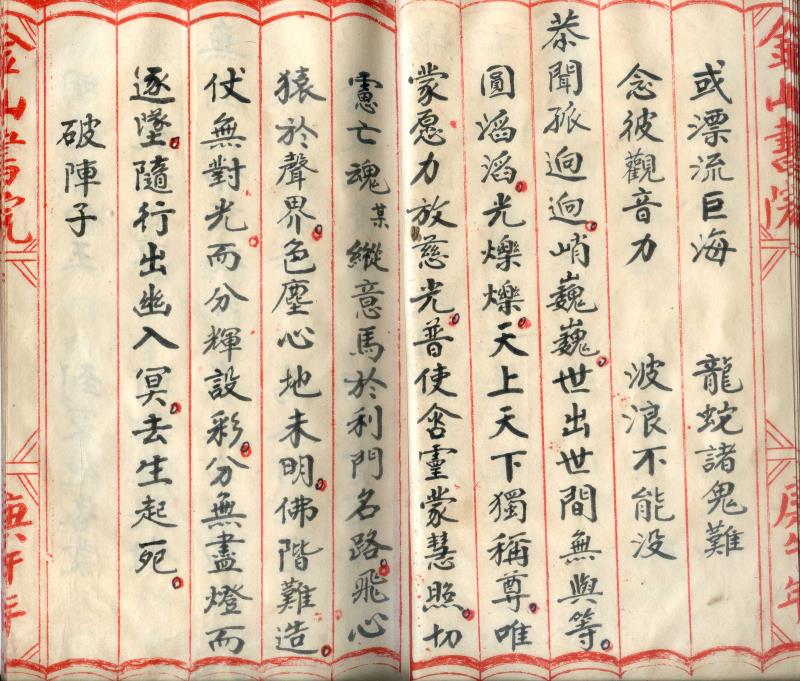 金山書院 庚午年
或漂流巨海 龍蛇諸鬼難
念彼觀音力 波浪不能没
恭聞孤迥迥。峭巍巍。世出世間無與等。
圓滔滔。光爍爍。天上天下獨稱尊。唯
蒙愿力放慈光。普使含靈蒙慧照。切
慮亡魂某縱意馬於利門名路。飛心
猿於聲界。色塵心地未明。佛階難造。
伏無對光。而分輝設彩。分無盡燈而
逐墜。隨行出幽入冥。去生起死。
破陣子
金山書院 庚午年